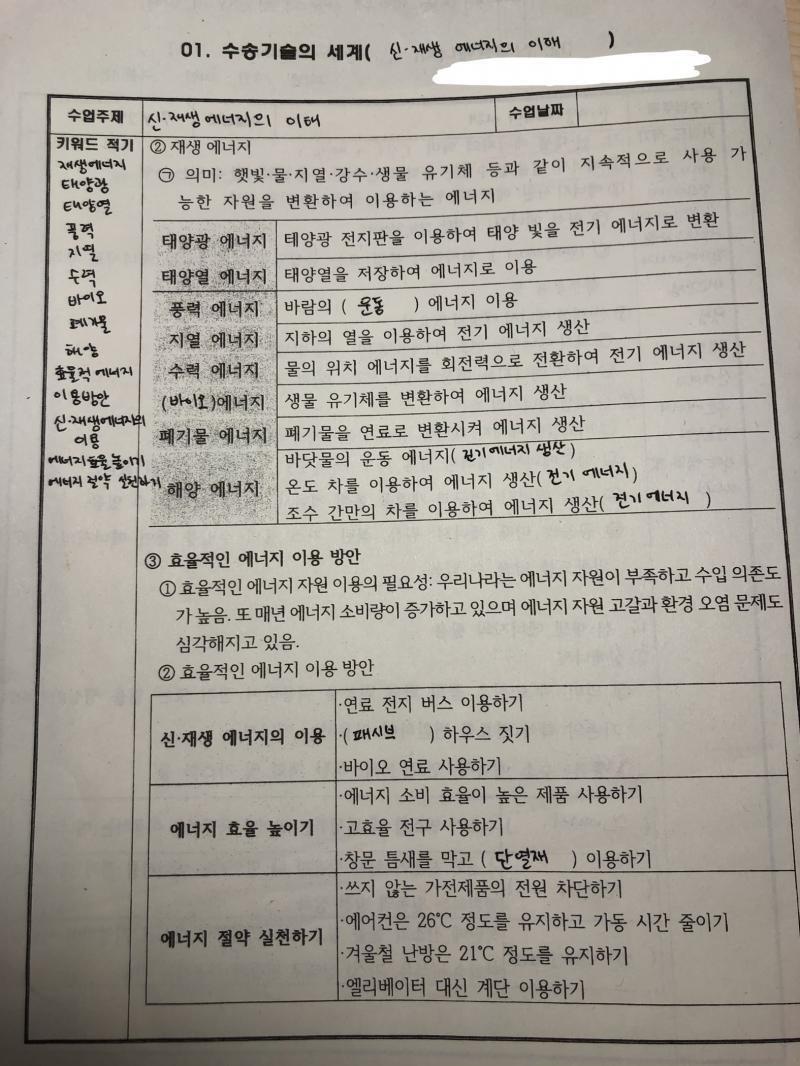 01. 수송기술의 세계( 신·재생 에너지의 이해 )
수업주제
신·재생에너지의 이해
수업날짜
키워드 적기
재생에너지
태양광
태양열
풍력
지열
수력
바이오
폐기물
해양
효율적 에너지
이용방안
신·재생에너지의
이용
에너지효율높이기
에너지 절약 실천하기
② 재생 에너지
㉠ 의미: 햇빛·물·지열·강수·생물 유기체 등과 같이 지속적으로 사용 가
능한 자원을 변환하여 이용하는 에너지
태양광 에너지 태양광 전지판을 이용하여 태양 빛을 전기 에너지로 변환
태양열 에너지 태양열을 저장하여 에너지로 이용
풍력 에너지 바람의 ( 운동 ) 에너지 이용
지열 에너지 지하의 열을 이용하여 전기 에너지 생산
수력 에너지 물의 위치 에너지를 회전력으로 전환하여 전기 에너지 생산
(바이오)에너지 생물 유기체를 변환하여 에너지 생산
폐기물 에너지 폐기물을 연료로 변환시켜 에너지 생산
해양 에너지
바닷물의 운동 에너지( 전기에너지 생산)
온도 차를 이용하여 에너지 생산( 전기 에너지)
조수 간만의 차를 이용하여 에너지 생산( 전기에너지 )
③ 효율적인 에너지 이용 방안
① 효율적인 에너지 자원 이용의 필요성: 우리나라는 에너지 자원이 부족하고 수입 의존도
가 높음. 또 매년 에너지 소비량이 증가하고 있으며 에너지 자원 고갈과 환경 오염 문제도
심각해지고 있음.
② 효율적인 에너지 이용 방안
신·재생 에너지의 이용
·연료 전지 버스 이용하기
·( 패시브 ) 하우스 짓기
·바이오 연료 사용하기
에너지 효율 높이기
·에너지 소비 효율이 높은 제품 사용하기
·고효율 전구 사용하기
·창문 틈새를 막고 ( 단열재 ) 이용하기
에너지 절약 실천하기
·쓰지 않는 가전제품의 전원 차단하기
·에어컨은 26℃ 정도를 유지하고 가동 시간 줄이기
·겨울철 난방은 21℃ 정도를 유지하기
·엘리베이터 대신 계단 이용하기